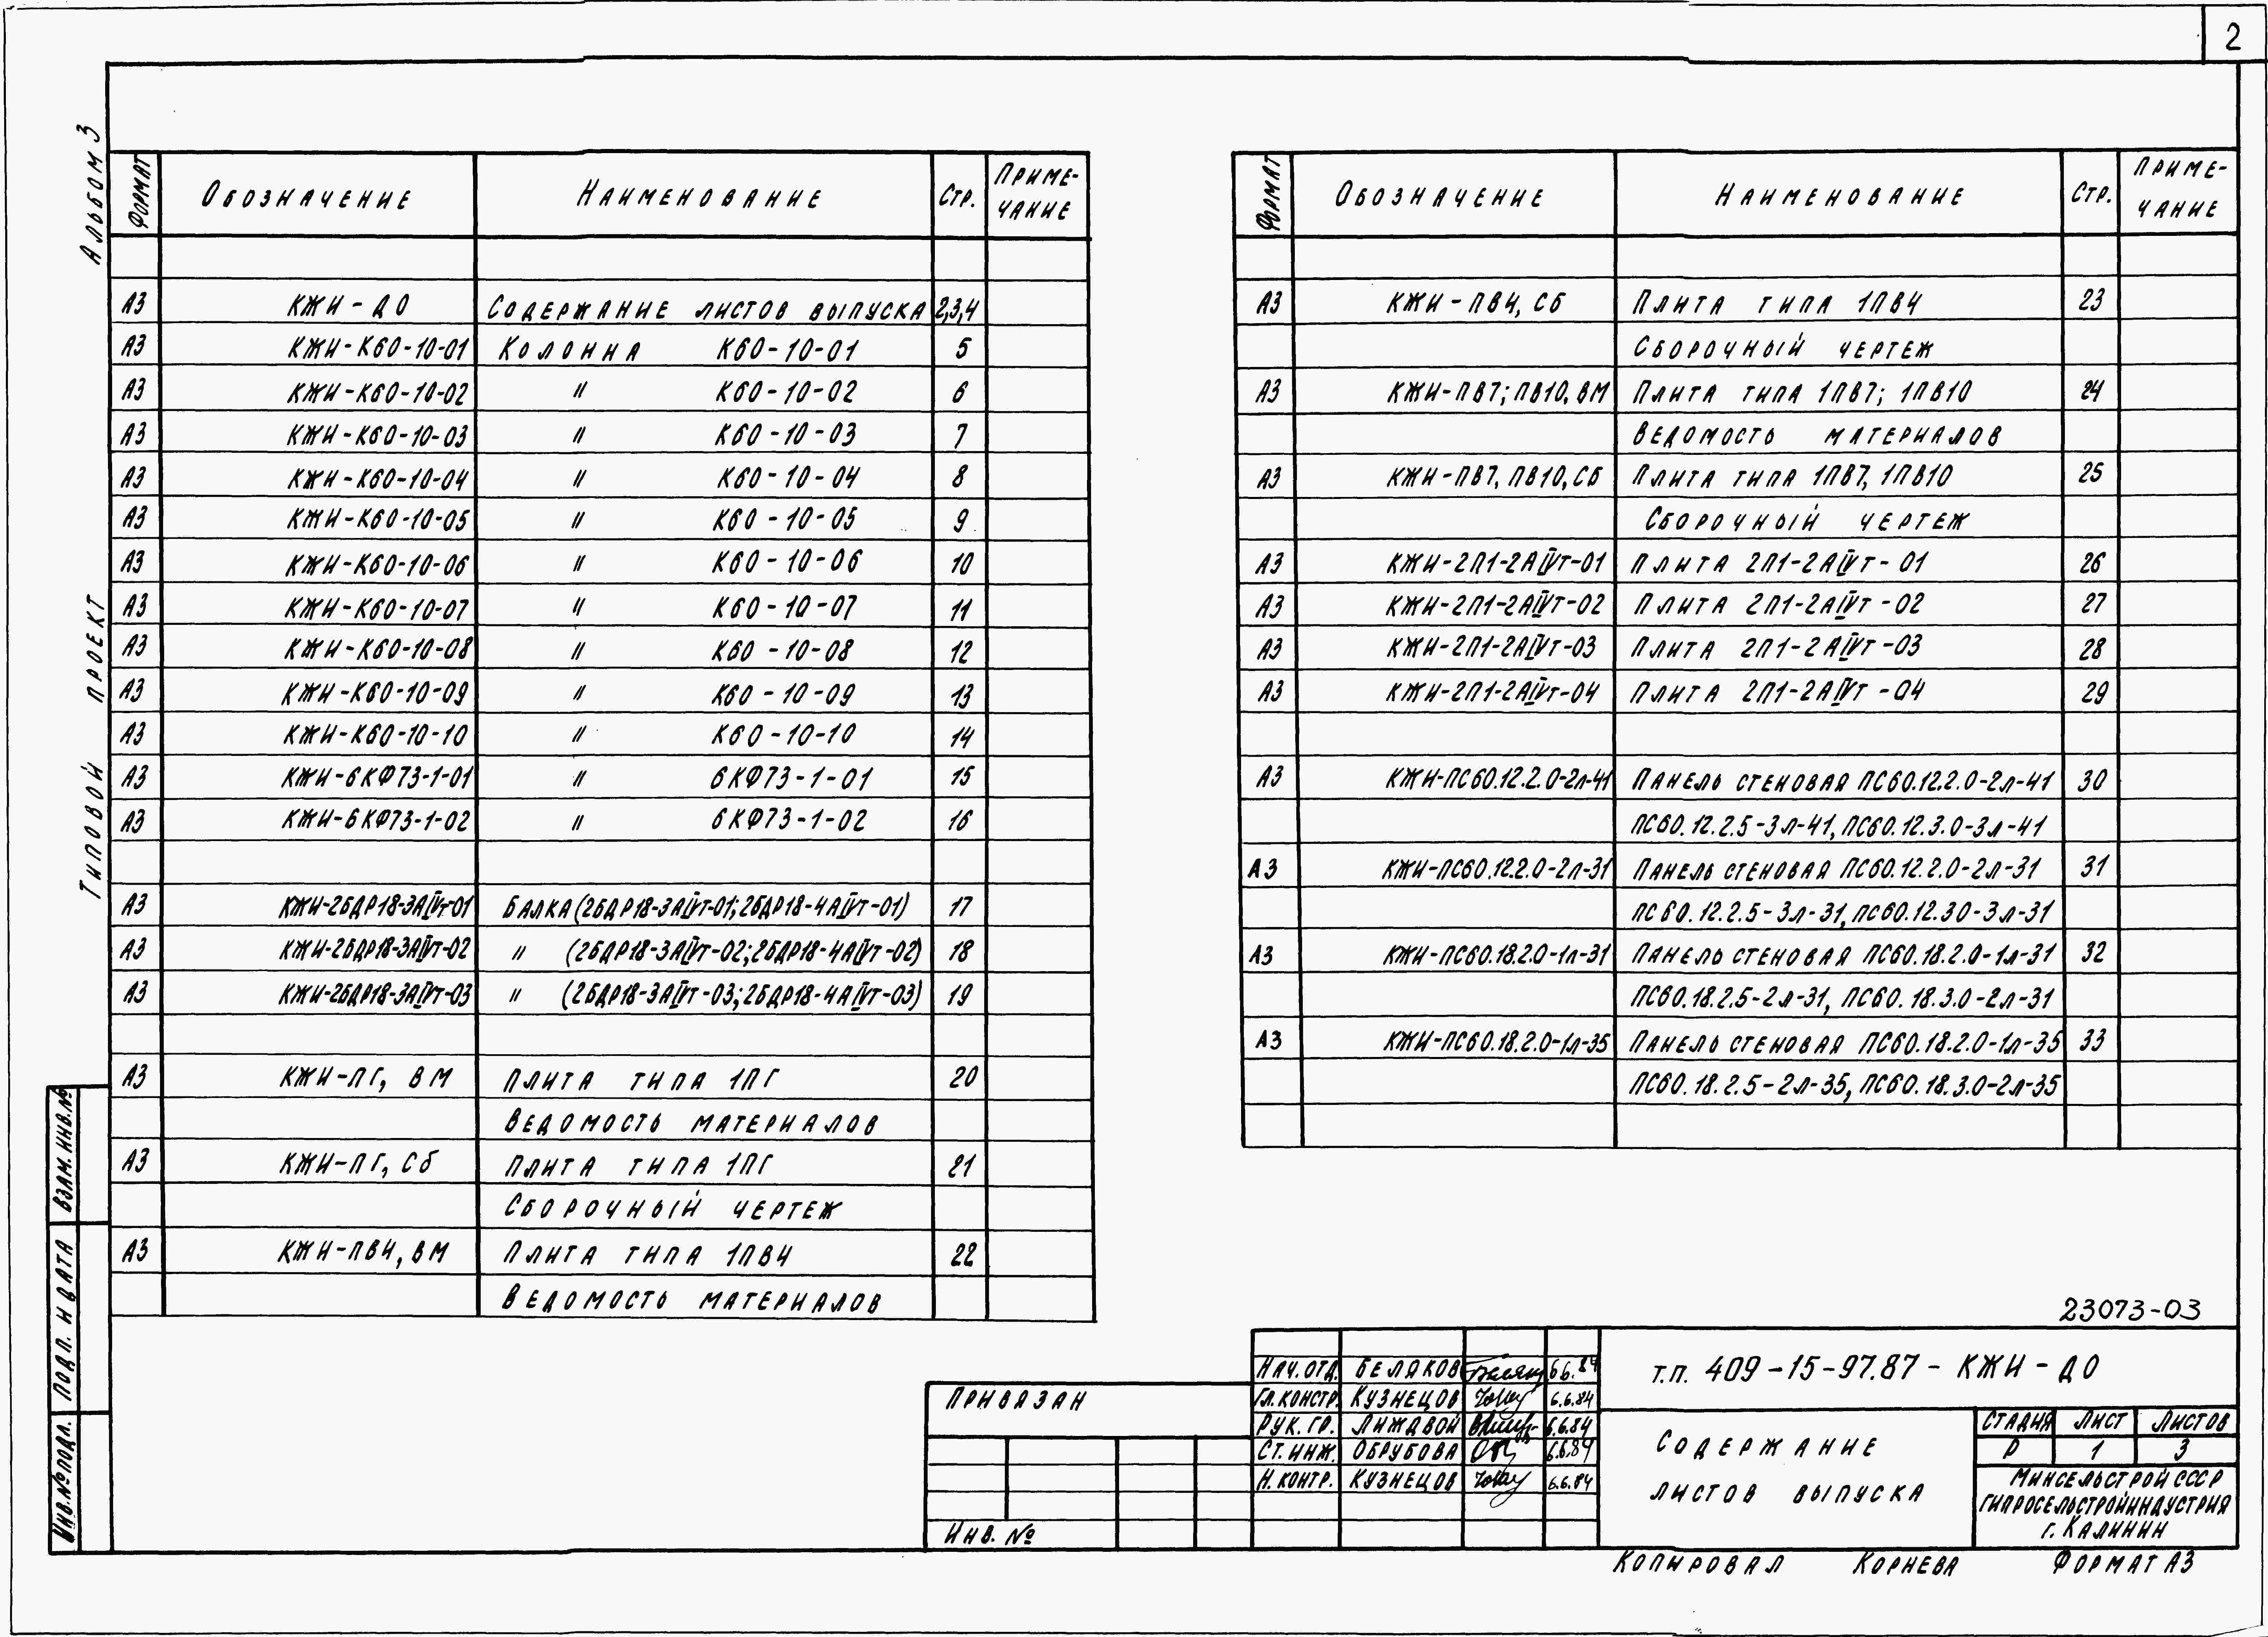 2
Альбом 3
Типовой проект
Формат Обозначение Наименование Стр. Приме-
чание
А3 КЖИ-ДО Содержание листов выпуска 2,3,4
А3 КЖИ-К60-10-01 Колонна К60-10-01 5
А3 КЖИ-К60-10-02 " К60-10-02 6
А3 КЖИ-К60-10-03 " К60-10-03 7
А3 КЖИ-К60-10-04 " К60-10-04 8
А3 КЖИ-К60-10-05 " К60-10-05 9
А3 КЖИ-К60-10-06 " К60-10-06 10
А3 КЖИ-К60-10-07 " К60-10-07 11
А3 КЖИ-К60-10-08 " К60-10-08 12
А3 КЖИ-К60-10-09 " К60-10-09 13
А3 КЖИ-К60-10-10 " К60-10-10 14
А3 КЖИ-6КФ73-1-01 " 6КФ73-1-01 15
А3 КЖИ-6КФ73-1-02 " 6КФ73-1-02 16
А3 КЖИ-2БДР18-3АIVт-01 Балка (2БДР18-3АIVт-01; 2БДР18-4АIVт-01) 17
А3 КЖИ-2БДР18-3АIVт-02 " (2БДР18-3АIVт-02; 2БДР18-4АIVт-02) 18
А3 КЖИ-2БДР18-3АIVт-03 " (2БДР18-3АIVт-03; 2БДР18-4АIVт-03) 19
А3 КЖИ-ПГ, ВМ Плита типа 1ПГ 20
Ведомость материалов
А3 КЖИ-ПГ, Сб Плита типа 1ПГ 21
Сборочный чертеж
А3 КЖИ-ПВ4, ВМ Плита типа 1ПВ4 22
Ведомость материалов
Формат Обозначение Наименование Стр. Приме-
чание
А3 КЖИ-ПВ4, СБ Плита типа 1ПВ4 23
Сборочный чертеж
А3 КЖИ-ПВ7; ПВ10, ВМ Плита типа 1ПВ7; 1ПВ10 24
Ведомость материалов
А3 КЖИ-ПВ7, ПВ10, СБ Плита типа 1ПВ7, 1ПВ10 25
Сборочный чертеж
А3 КЖИ-2П1-2АIVт-01 Плита 2П1-2АIVт-01 26
А3 КЖИ-2П1-2АIVт-02 Плита 2П1-2АIVт-02 27
А3 КЖИ-2П1-2АIVт-03 Плита 2П1-2АIVт-03 28
А3 КЖИ-2П1-2АIVт-04 Плита 2П1-2АIVт-04 29
А3 КЖИ-ПС60.12.2.0-2л-41 Панель стеновая ПС60.12.2.0-2л-41 30
ПС60.12.2.5-3л-41, ПС60.12.3.0-3л-41
А3 КЖИ-ПС60.12.2.0-2л-31 Панель стеновая ПС60.12.2.0-2л-31 31
ПС60.12.2.5-3л-31, ПС60.12.30-3л-31
А3 КЖИ-ПС60.18.2.0-1л-31 Панель стеновая ПС60.18.2.0-1л-31 32
ПС60.18.2.5-2л-31, ПС60.18.3.0-2л-31
А3 КЖИ-ПС60.18.2.0-1л-35 Панель стеновая ПС60.18.2.0-1л-35 33
ПС60.18.2.5-2л-35, ПС60.18.3.0-2л-35
Взам. инв. №
Подп. и дата
Инв. № подл.
23073-03
Привязан
Инв. №
Нач. отд. Беляков 6.6.84
Гл. констр. Кузнецов 6.6.84
Рук. гр. Лиждвой 6.6.84
Ст. инж. Обрубова 6.6.84
Н. контр. Кузнецов 6.6.84
т.п. 409-15-97.87-КЖИ-ДО
Содержание
листов выпуска
Стадия Лист Листов
Р 1 3
Минсельстрой СССР
Гипросельстройиндустрия
г. Калинин
Копировал Корнева Формат А3